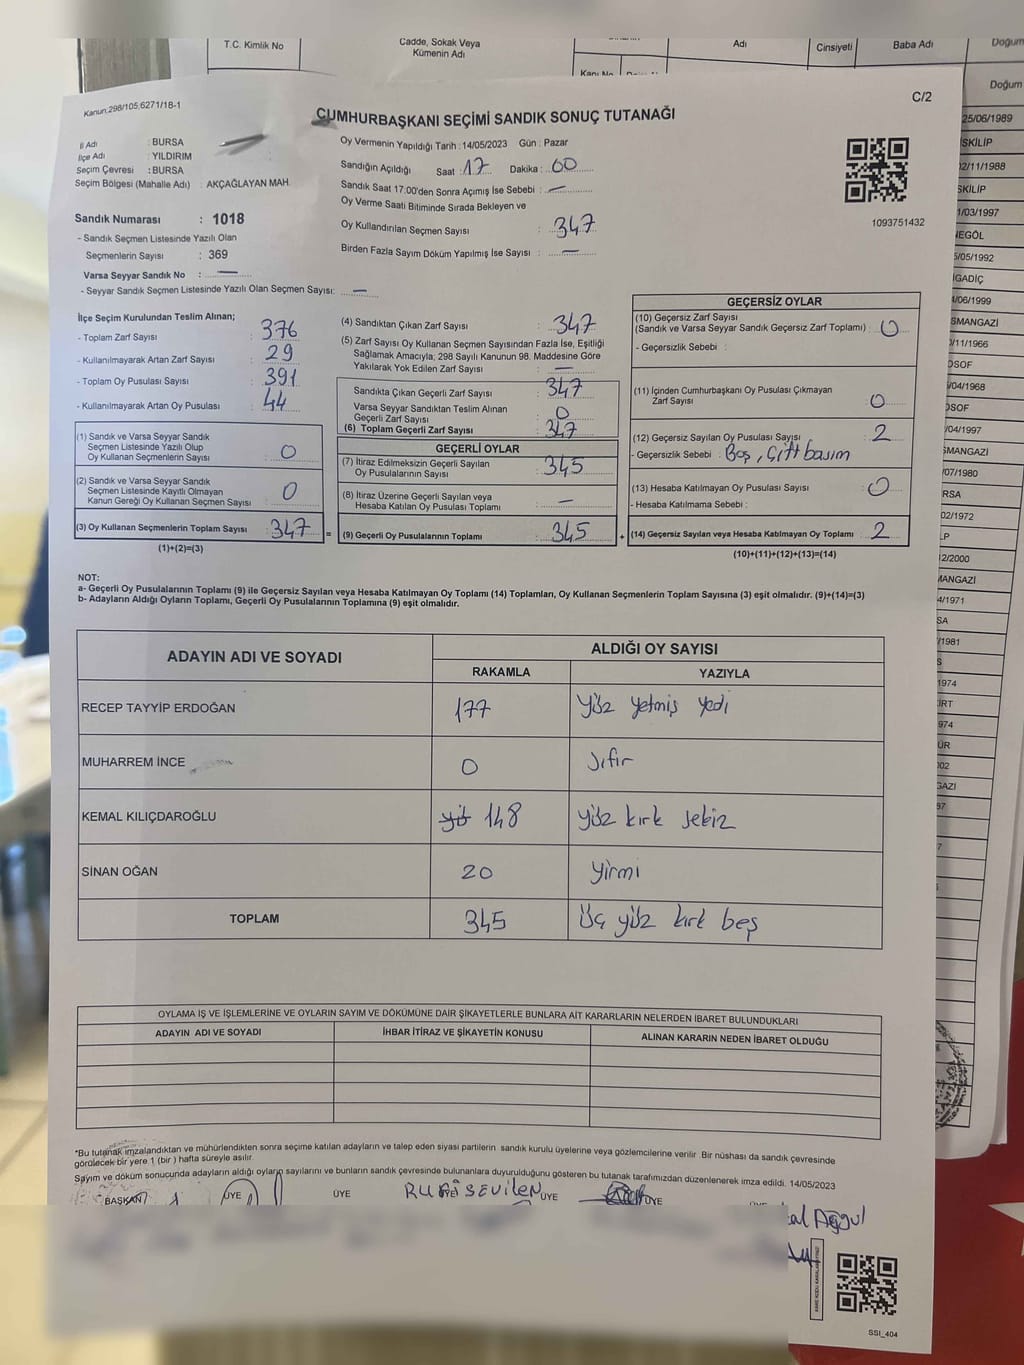 T.C. Kimlik No
Cadde, Sokak Veya
Kümenin Adı
Adı
Cinsiyeti
Baba Adı
Doğum
Kapı No
Doğum
Kanun:298/105;6271/18-1
C/2
CUMHURBAŞKANI SEÇİMİ SANDIK SONUÇ TUTANAĞI
İl Adı : BURSA
İlçe Adı : YILDIRIM
Seçim Çevresi : BURSA
Seçim Bölgesi (Mahalle Adı) : AKÇAĞLAYAN MAH.
Oy Vermenin Yapıldığı Tarih : 14/05/2023 Gün : Pazar
Sandığın Açıldığı Saat : 17 Dakika : 00
Sandık Saat 17.00'den Sonra Açımış İse Sebebi : —
Oy Verme Saati Bitiminde Sırada Bekleyen ve
Oy Kullandırılan Seçmen Sayısı : 347
Birden Fazla Sayım Döküm Yapılmış İse Sayısı : —
1093751432
Sandık Numarası : 1018
- Sandık Seçmen Listesinde Yazılı Olan
Seçmenlerin Sayısı : 369
Varsa Seyyar Sandık No : —
- Seyyar Sandık Seçmen Listesinde Yazılı Olan Seçmen Sayısı: —
İlçe Seçim Kurulundan Teslim Alınan;
- Toplam Zarf Sayısı : 376
- Kullanılmayarak Artan Zarf Sayısı : 29
- Toplam Oy Pusulası Sayısı : 391
- Kullanılmayarak Artan Oy Pusulası : 44
(1) Sandık ve Varsa Seyyar Sandık
Seçmen Listesinde Yazılı Olup
Oy Kullanan Seçmenlerin Sayısı : 0
(2) Sandık ve Varsa Seyyar Sandık
Seçmen Listesinde Kayıtlı Olmayan
Kanun Gereği Oy Kullanan Seçmen Sayısı : 0
(3) Oy Kullanan Seçmenlerin Toplam Sayısı : 347
(1)+(2)=(3)
(4) Sandıktan Çıkan Zarf Sayısı : 347
(5) Zarf Sayısı Oy Kullanan Seçmen Sayısından Fazla İse, Eşitliği
Sağlamak Amacıyla; 298 Sayılı Kanunun 98. Maddesine Göre
Yakılarak Yok Edilen Zarf Sayısı : —
Sandıkta Çıkan Geçerli Zarf Sayısı : 347
Varsa Seyyar Sandıktan Teslim Alınan
Geçerli Zarf Sayısı : 0
(6) Toplam Geçerli Zarf Sayısı : 347
GEÇERLİ OYLAR
(7) İtiraz Edilmeksizin Geçerli Sayılan
Oy Pusulalarının Sayısı : 345
(8) İtiraz Üzerine Geçerli Sayılan veya
Hesaba Katılan Oy Pusulası Toplamı : —
=
(9) Geçerli Oy Pusulalarının Toplamı : 345
+
GEÇERSİZ OYLAR
(10) Geçersiz Zarf Sayısı
(Sandık ve Varsa Seyyar Sandık Geçersiz Zarf Toplamı) : 0
- Geçersizlik Sebebi :
(11) İçinden Cumhurbaşkanı Oy Pusulası Çıkmayan
Zarf Sayısı : 0
(12) Geçersiz Sayılan Oy Pusulası Sayısı : 2
- Geçersizlik Sebebi : Boş, Çift basım
(13) Hesaba Katılmayan Oy Pusulası Sayısı : 0
- Hesaba Katılmama Sebebi :
(14) Geçersiz Sayılan veya Hesaba Katılmayan Oy Toplamı : 2
(10)+(11)+(12)+(13)=(14)
NOT:
a- Geçerli Oy Pusulalarının Toplamı (9) ile Geçersiz Sayılan veya Hesaba Katılmayan Oy Toplamı (14) Toplamları, Oy Kullanan Seçmenlerin Toplam Sayısına (3) eşit olmalıdır. (9)+(14)=(3)
b- Adayların Aldığı Oyların Toplamı, Geçerli Oy Pusulalarının Toplamına (9) eşit olmalıdır.
ADAYIN ADI VE SOYADI
ALDIĞI OY SAYISI
RAKAMLA
YAZIYLA
RECEP TAYYİP ERDOĞAN 177 Yüz yetmiş yedi
MUHARREM İNCE 0 Sıfır
KEMAL KILIÇDAROĞLU 148 Yüz kırk sekiz
SİNAN OĞAN 20 Yirmi
TOPLAM 345 Üç yüz kırk beş
OYLAMA İŞ VE İŞLEMLERİNE VE OYLARIN SAYIM VE DÖKÜMÜNE DAİR ŞİKAYETLERLE BUNLARA AİT KARARLARIN NELERDEN İBARET BULUNDUKLARI
ADAYIN ADI VE SOYADI
İHBAR İTİRAZ VE ŞİKAYETİN KONUSU
ALINAN KARARIN NEDEN İBARET OLDUĞU
*Bu tutanak imzalandıktan ve mühürlendikten sonra seçime katılan adayların ve talep eden siyasi partilerin sandık kurulu üyelerine veya gözlemcilerine verilir Bir nüshası da sandık çevresinde
görülecek bir yere 1 (bir ) hafta süreyle asılır.
Sayım ve döküm sonucunda adayların aldığı oyların sayılarını ve bunların sandık çevresinde bulunanlara duyurulduğunu gösteren bu tutanak tarafımızdan düzenlenerek imza edildi. 14/05/2023
BAŞKAN ÜYE ÜYE ÜYE ÜYE
Ağgül
SSI_404
25/06/1989
İSKİLİP
02/11/1988
1/03/1997
NEGÖL
5/05/1992
IGADİÇ
/06/1999
SMANGAZİ
/11/1966
OSOF
/04/1968
OSOF
/04/1997
SMANGAZİ
/07/1980
RSA
02/1972
LP
2/2000
MANGAZİ
4/1971
SA
/1981
S
1974
İRT
974
ÜR
02
GAZİ